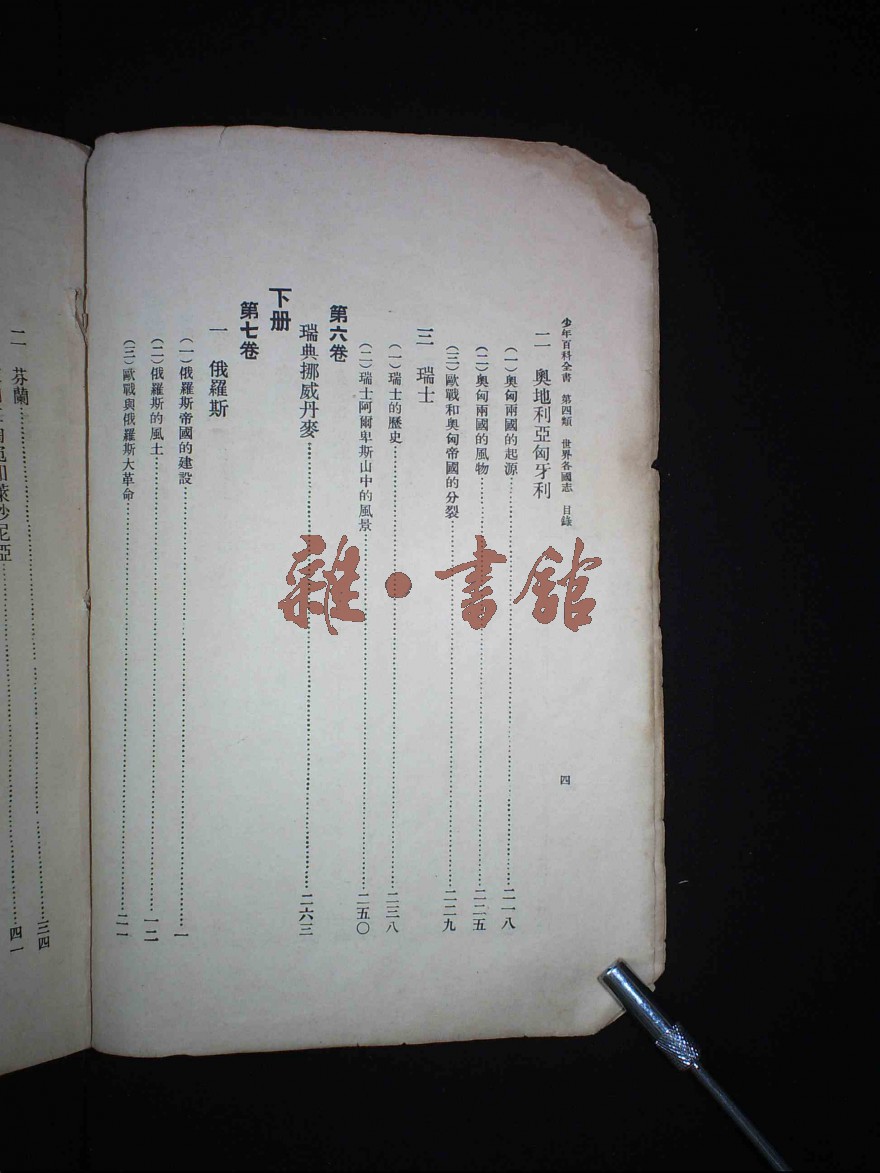 少年百科全書 第四類 世界各國志 目錄 四
二 奧地利亞匈牙利
(一)奧匈兩國的起源……二一八
(二)奧匈兩國的風物……二二五
(三)歐戰和奧匈帝國的分裂……二二九
三 瑞士
(一)瑞士的歷史……二三八
(二)瑞士阿爾卑斯山中的風景……二五〇
第六卷
瑞典挪威丹麥……二六三
下册
第七卷
一 俄羅斯
(一)俄羅斯帝國的建設……一
(二)俄羅斯的風土……一二
(三)歐戰與俄羅斯大革命……二一
二 芬蘭……三四
四一
雜•書館